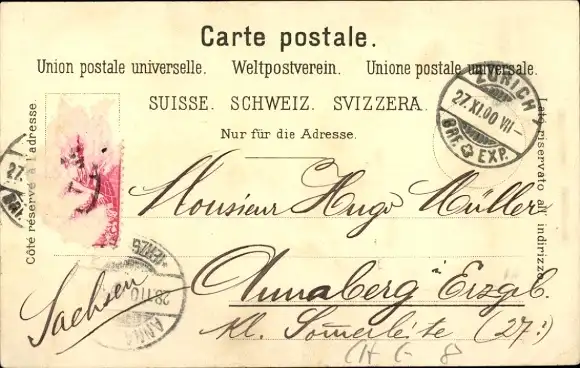 Carte postale.
Union postale universelle. Weltpostverein. Unione postale universale.
SUISSE. SCHWEIZ. SVIZZERA.
Nur für die Adresse.
Côté réservé à l'adresse.
Lato riservato all' indirizzo.
ZÜRICH
27.XI.00 VII-
BRF. EXP.
27.
BRF.
Monsieur Hugo Müller
Annaberg i/ Erzgb.
Sachsen
kl. (27:)
CH G 8